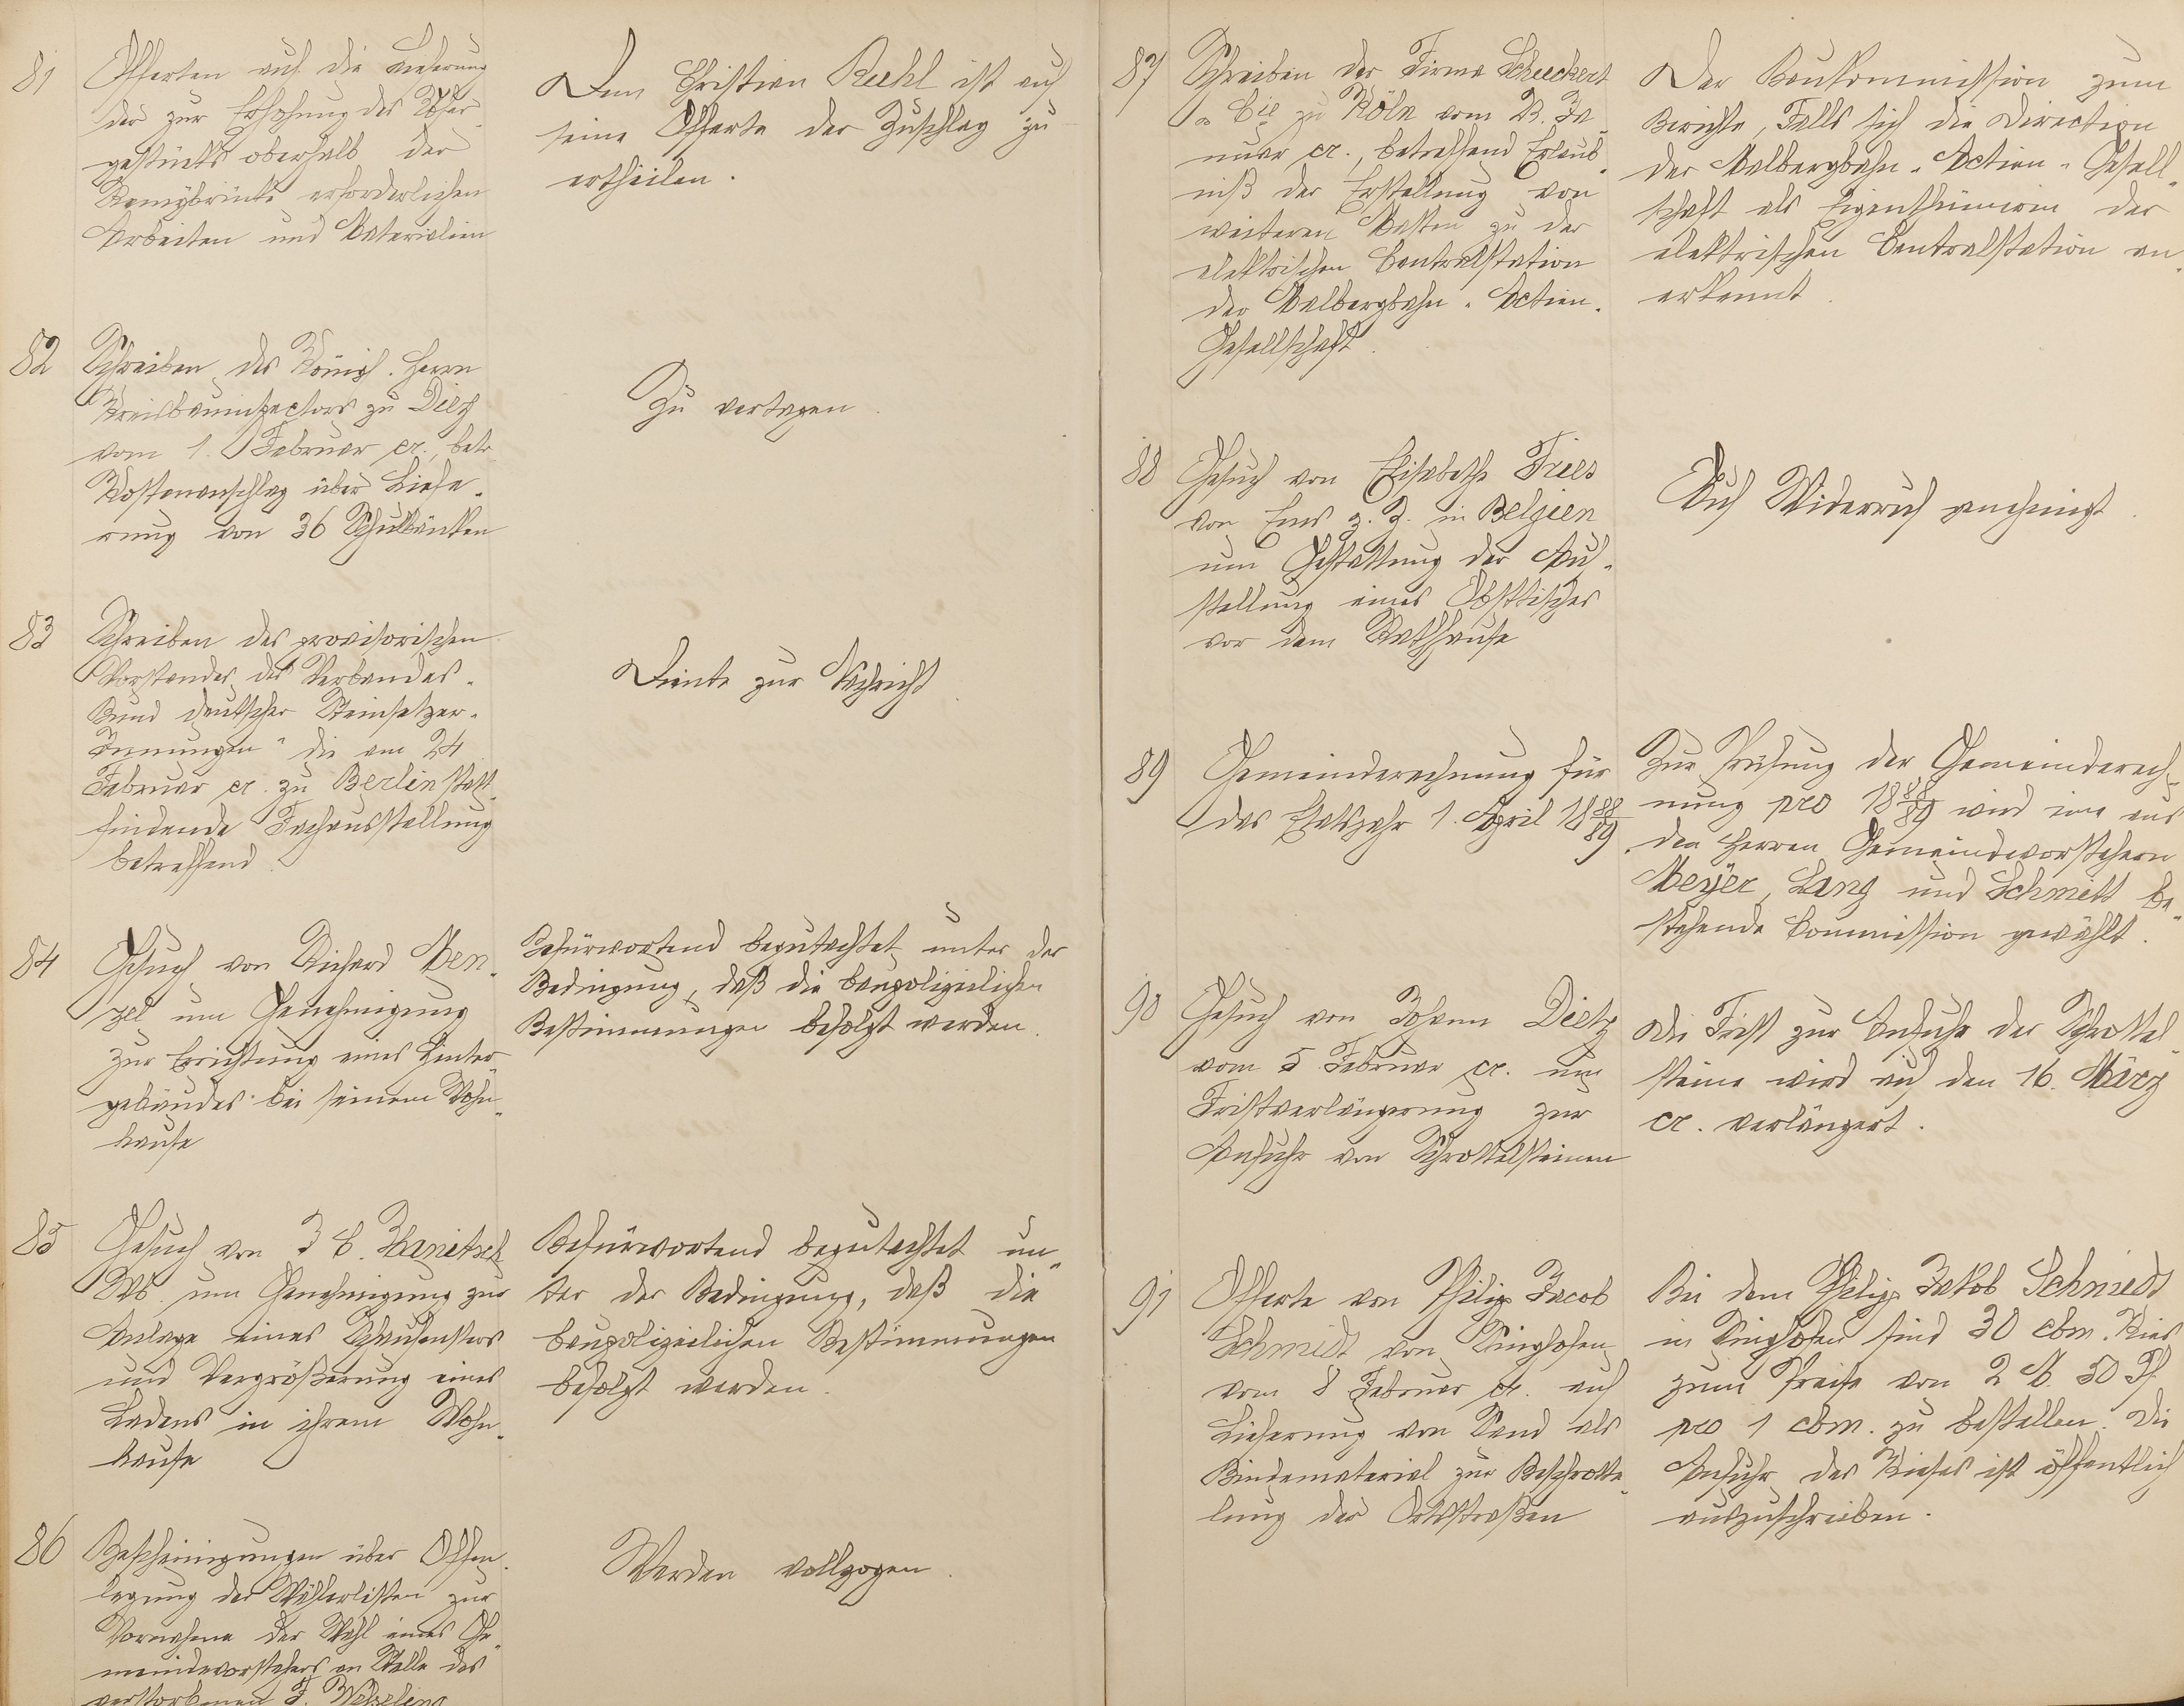 81
Offerten auf die Lieferung
der zur Erhöhung des Ufer-
gestücks oberhalb der
Remybrücke erforderlichen
Arbeiten und Materialien
Dem Christian Ruehl ist auf
seine Offerte der Zuschlag zu
ertheilen.
82
Schreiben des Königl. Herrn
Kreisbauinspectors zu Diez
vom 1. Februar cr., betr.
Kostenanschlag über Liefe-
rung von 36 Schulbänken
Zu vertagen.
83
Schreiben des provisorischen
Vorstandes des Verbandes
Bund deutscher Steinsetzer-
Innungen" die am 24
Februar cr. zu Berlin statt-
findende Fachausstellung
betreffend.
Diente zur Nachricht.
84
Gesuch von Richard Men-
zel um Genehmigung
zur Errichtung eines Hinter-
gebäudes bei seinem Wohn-
hause
Befürwortend begutachtet unter der
Bedingung, daß die baupolizeilichen
Bestimmungen befolgt werden.
85
Gesuch von J C.
Wb. um Genehmigung zur
Anlage eines Schaufensters
und Vergrößerung eines
Ladens in ihrem Wohn-
hause
Befürwortend begutachtet un-
ter der Bedingung, daß die
baupolizeilichen Bestimmungen
befolgt werden.
86
Bescheinigungen über Offen-
legung der Wählerlisten zur
Vornahme der Wahl eines Ge-
meindevorstehers an Stelle des
verstorbenen F.
Werden vollzogen.
87
Schreiben der Firma Schuckert
& Cie zu Köln vom 23. Ja-
nuar cr., betreffend Erlaub-
niß der Erstellung von
weiteren Masten zu der
elektrischen Centralstation
der Malbergbahn-Actien-
Gesellschaft.
Der Baukommission zum
Bericht, Falls sich die Direction
der Malbergbahn-Actien-Gesell-
schaft als Eigenthümerin der
elektrischen Centralstation an-
erkennt.
88
Gesuch von Elisabeth Fries
von Ems z. Z. in Belgien
um Gestattung der Auf-
stellung eines Obsttisches
vor dem Rathhause
Auf Widerruf genehmigt.
89
Gemeinderechnung für
das Etatsjahr 1. April 1888/89.
Zur Prüfung der Gemeinderech-
nung pro 1888/89 wird eine aus
den Herren Gemeindevorstehern
Meyer, Lang und Schmitt be-
stehende Commission gewählt.
90
Gesuch von Johann Dietz
vom 5 Februar cr. um
Fristverlängerung zur
Anfuhr von Schrottelsteinen
Die Frist zur Anfuhr der Schrottel-
steine wird auf den 16. März
cr. verlängert.
91
Offerte von Philipp Jacob
Schmidt von Singhofen
vom 8 Februar cr. auf
Lieferung von Sand als
Bindematerial zur Beschrotte-
lung der Ortsstraßen
Bei dem Philipp Jakob Schmidt
in Singhofen sind 30 cbm. Kies
zum Preise von 2 M. 50 Pf.
pro 1 cbm. zu bestellen. Die
Anfuhr des Kieses ist öffentlich
auszuschreiben.